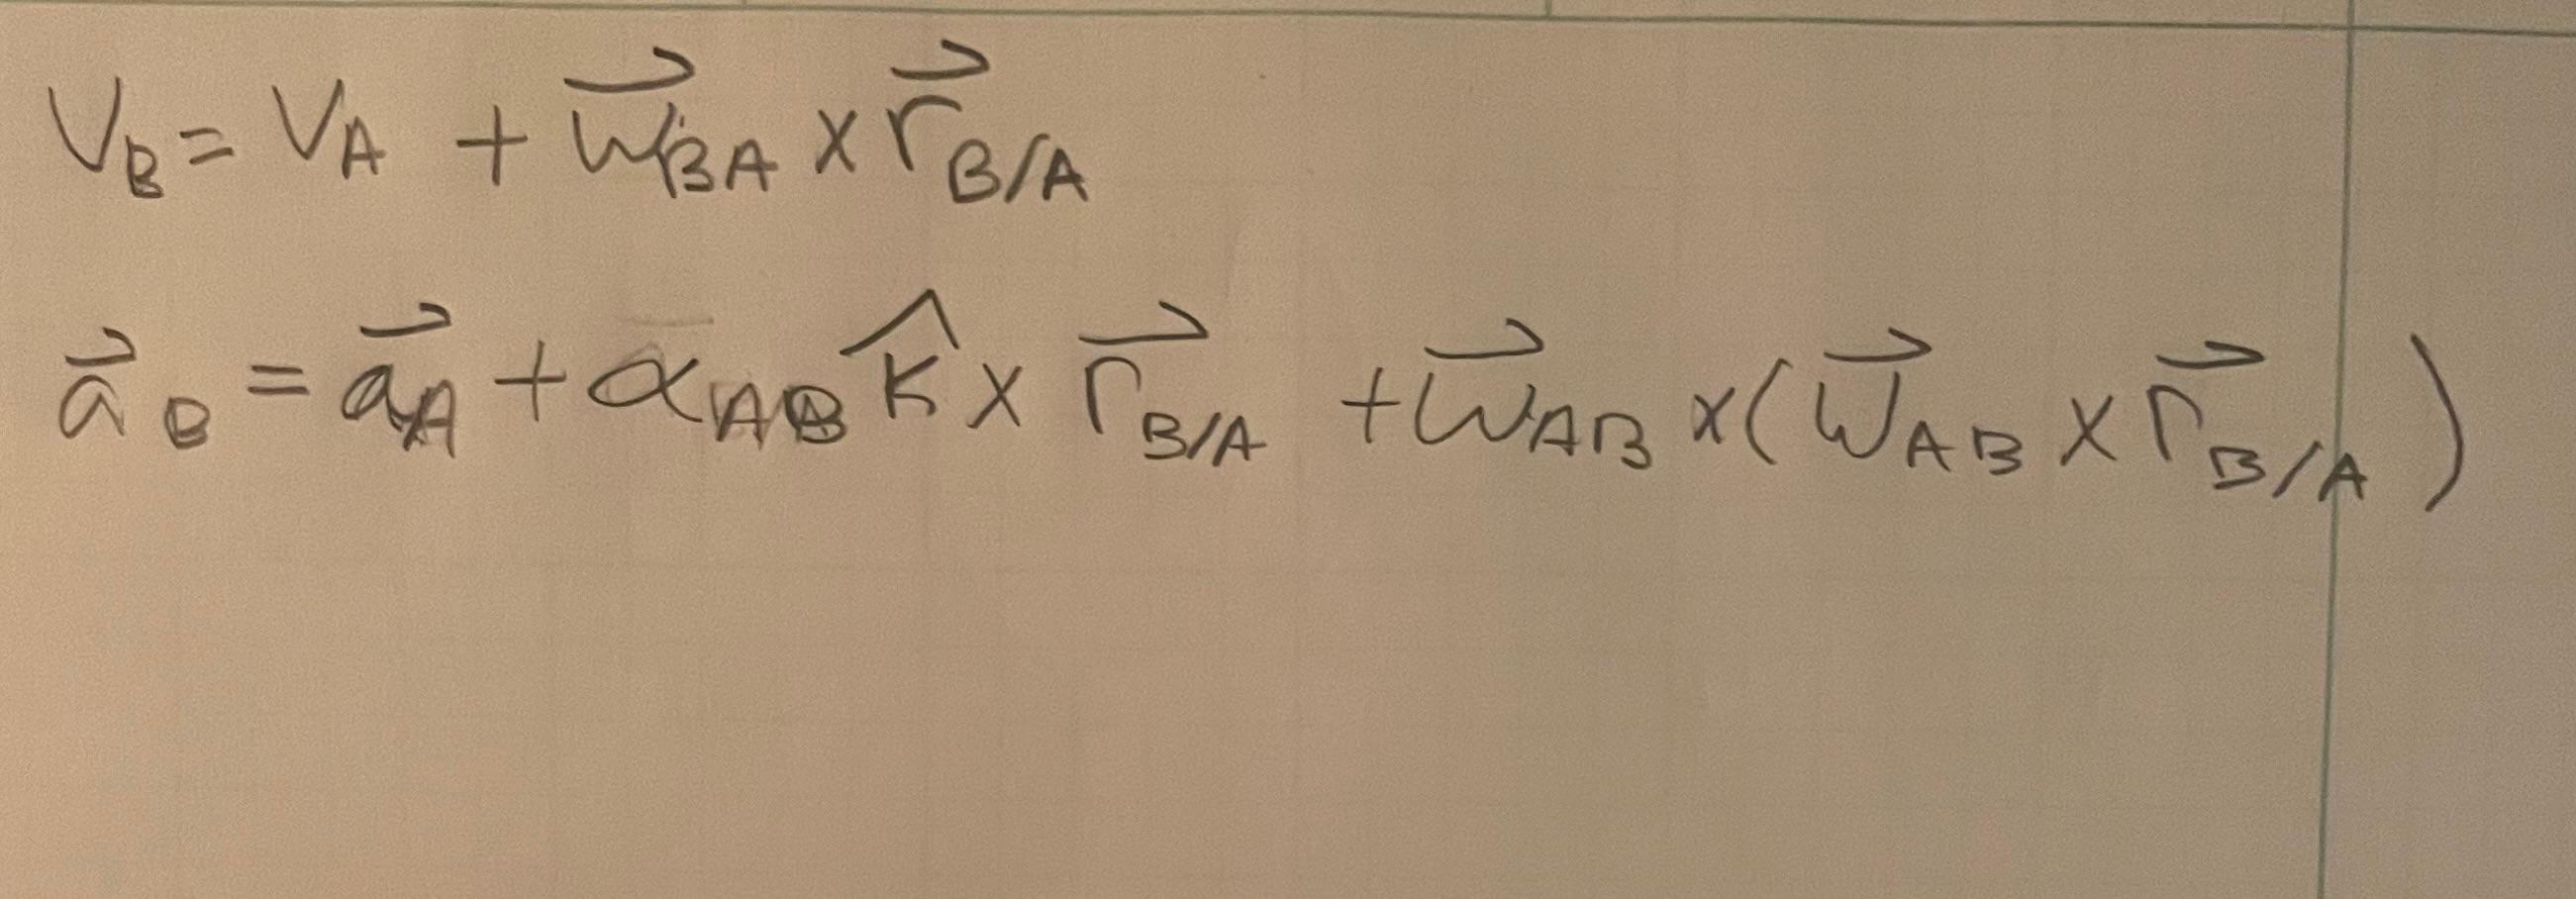 V_B = V_A + \vec{ω}_{BA} × \vec{r}_{B/A}
\vec{a}_B = \vec{a}_A + α_{AB} \hat{k} × \vec{r}_{B/A} + \vec{ω}_{AB} × (\vec{ω}_{AB} × \vec{r}_{B/A})